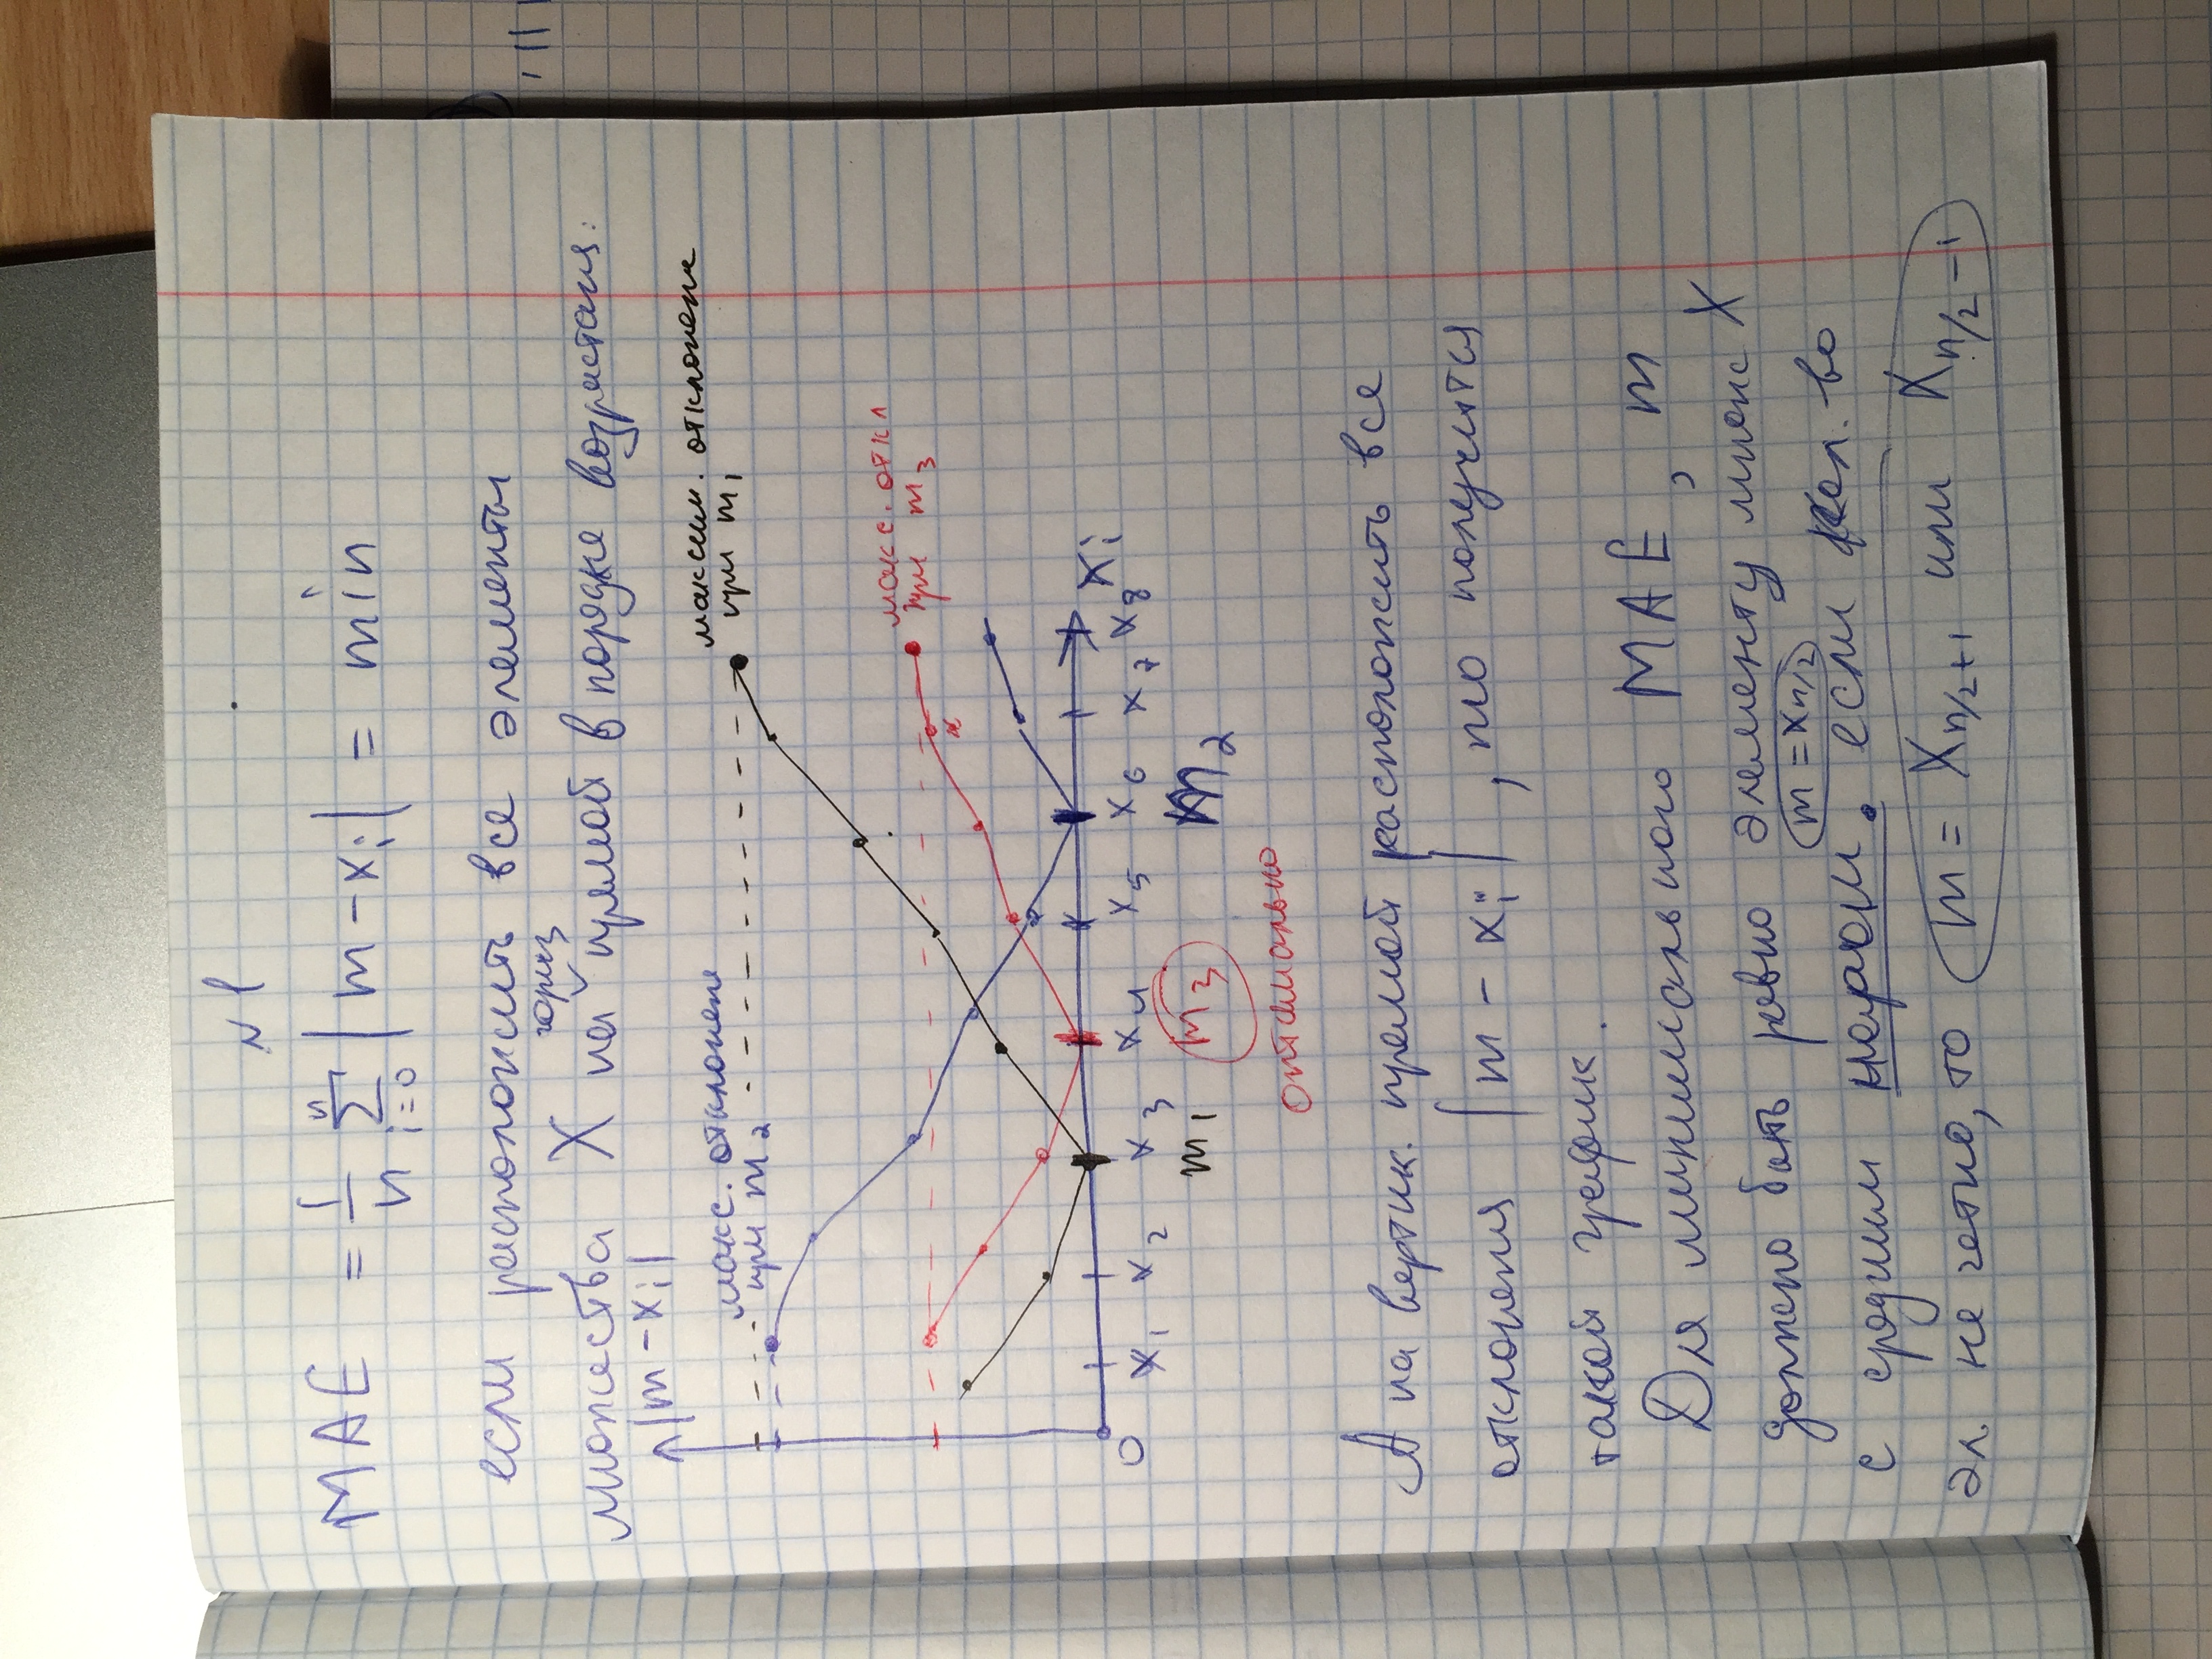 №1
MAE = 1/n Σ_{i=0}^{n} |m - x_i| = min
если расположить все элементы
гориз
множества X на прямой в порядке возрастания:
|m - x_i|
макс. отклонение
при m_2
максим. отклонение
при m_1
макс. откл
при m_3
0 x_1 x_2 x_3 x_4 x_5 x_6 x_7 x_8 x_i
m_1 m_3 m_2
оптимально
А на вертик. прямой расположить все
отклонения |m - x_i|, то получится
такой график.
Для минимального MAE, m
должно быть равно элементу множ X
m = x_{n/2}
с средним . если кол. во
эл. не четно, то m = X_{n/2+1} или X_{n/2-1}